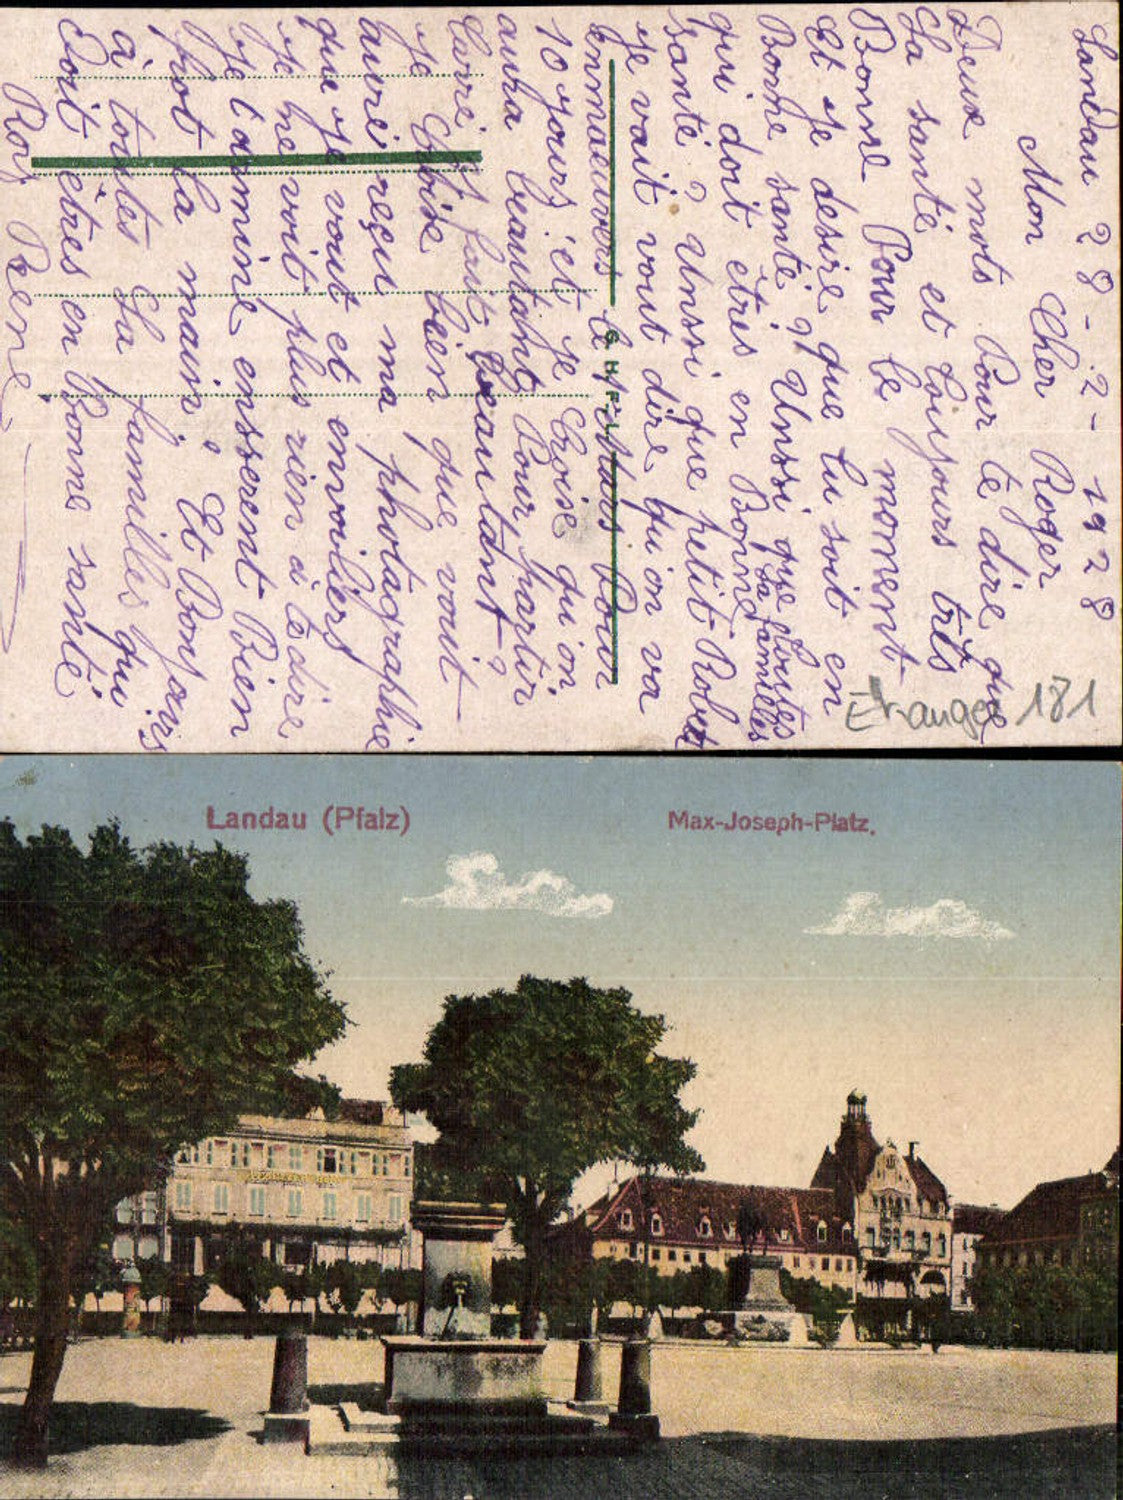 Landau 28-2-1928
Mon Cher Roger
Deux mots Pour te dire que
La santé et toujours très
Bonne Pour le moment
Et Je desire que lu soit en
Bonne santé ? Unssi que toutes
sa familles
qui doit êtres en Bonne
santé ? Unssi que petit Robert
Je vait vout dire qui on va
enmaeuvers le Mais Pour
10 jours et Je Croise qui on
aura beautant Pour partir
Carré il fait beau tant ?
Je Croise bein que vout
auré reçu ma photagraphie
que Je vout et envoilers
Je ne voit plus rien à te dire
Je termine ensserent Bien
frot la main , Et Bonjours
à toutes La familles qui
Doit êtres en Bonne santé
Rog Rene
G. H. F. L.
Etranger 181
Landau (Pfalz)
Max-Joseph-Platz.